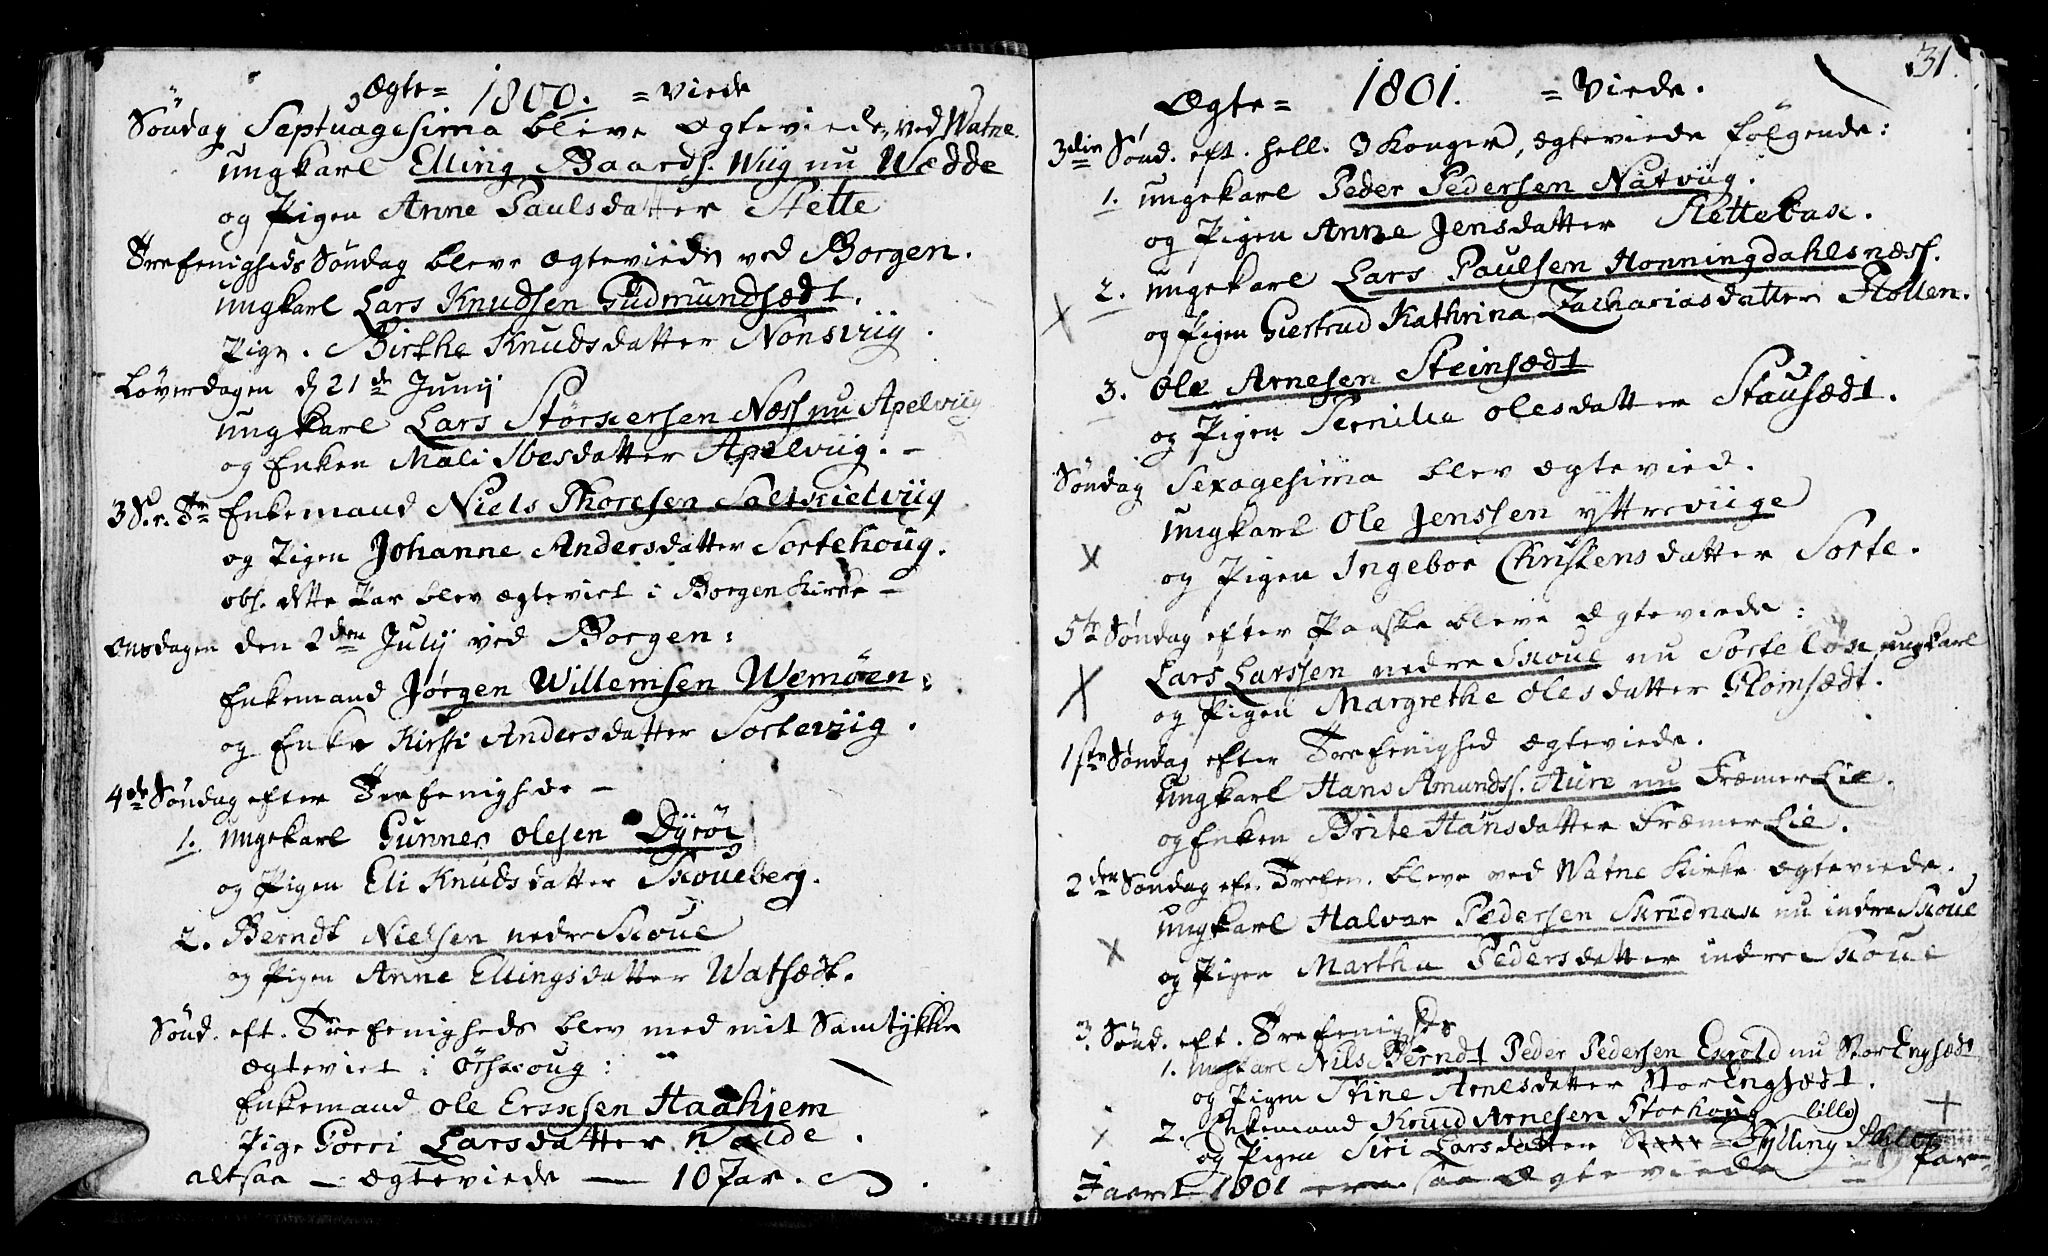 Ægte= 1800. =Viede
Søndag Septuagesima bleve Ægteviede, ved Watne.
ungkarl Elling Baards. Wiig nu Wædde
og Pigen Anne Paulsdatter Slette
Trefenigheds Søndag bleve ægteviede ved Borgen.
ungkarl Lars Knudsen Gudmundsædt.
Pige. Birthe Knudsdatter Nonsviig.
Løverdagen d 21de Junij
ungkarl Lars Størkersen Næss nu Apelviig
og Enken Mali Ibesdatter Apelviig. –
3 S. e. Tr Enkemand Niels Thoresen Saltkielviig
og Pigen Johanne Andersdatter Sortehoug.
obs. dette Par blev ægteviet i Borgen Kirke –
Onsdagen den 2den Julij ved Borgen:
Enkemand Jørgen Willemsen Wemøen:
og Enke Kirsti Andersdatter Sorteviig.
4de Søndag efter Trefenighede –
1. ungekarl Gunner Olesen Dyrøe
og Pigen Eli Knudsdatter Skoueberg.
2. Berndt Nielsen nedre Skoue
og Pigen Anne Ellingsdatter Watsædt.
Sønd. eft. Trefenigheds blev med mit Samtykke
ægteviet i Ørskoug:
Enkemand Ole Ersksen Haahjem
Pige Gorri Larsdatter Walde.
altsaa – ægteviede — 10 Par.
31.
Ægte= 1801. =Viede.
3die Sønd. eft. Hell. 3 Konger, ægteviede følgende:
1. ungekarl Peder Pedersen Natviig.
og Pigen Anne Jensdatter Slettebak.
2. ungekarl Lars Paulsen Honningdahlsnæss.
og Pigen Giertrud Kathrina Zachariasdatter Flolten.
3. Ole Arnesen Steinsædt
og Pigen Pernilia Olesdatter Stausædt.
Søndag Sexagesima blev ægtevied.
Ungkarl Ole Jenssen yttreviige
og Pigen Ingebor Christensdatter Sorte.
5te Søndag efter Paaske bleve Ægteviede:
Lars Larssen nedre Skoue nu Sorteløk, ungkarl
og Pigen Margrethe Olesdatter Glomsædt.
1ste Søndag efter Trefenighed ægteviede.
Ungkarl Hans Amundss. Aure nu FræmerLie.
og Enken Brite Hansdatter FræmerLie.
2den Søndag eft. Trefen. bleve ved Watne Kirke ægteviede.
Ungkarl Halvar Pedersen Skrednak nu indre Skoue
og Pigen Martha Pedersdatter indre Skoue
3. Sønd. eft. Trefenigheds
1. ungkarl Nils Berndt Peder Pedersen Exold nu StorEngsædt
og Pigen Stine Arnesdatter StorEngsædt.
2. Enkemand Knud Arnesen Storhoug
og Pigen Siri Larsdatter lille Fylling
I aaret 1801 ere saa Ægteviede Par